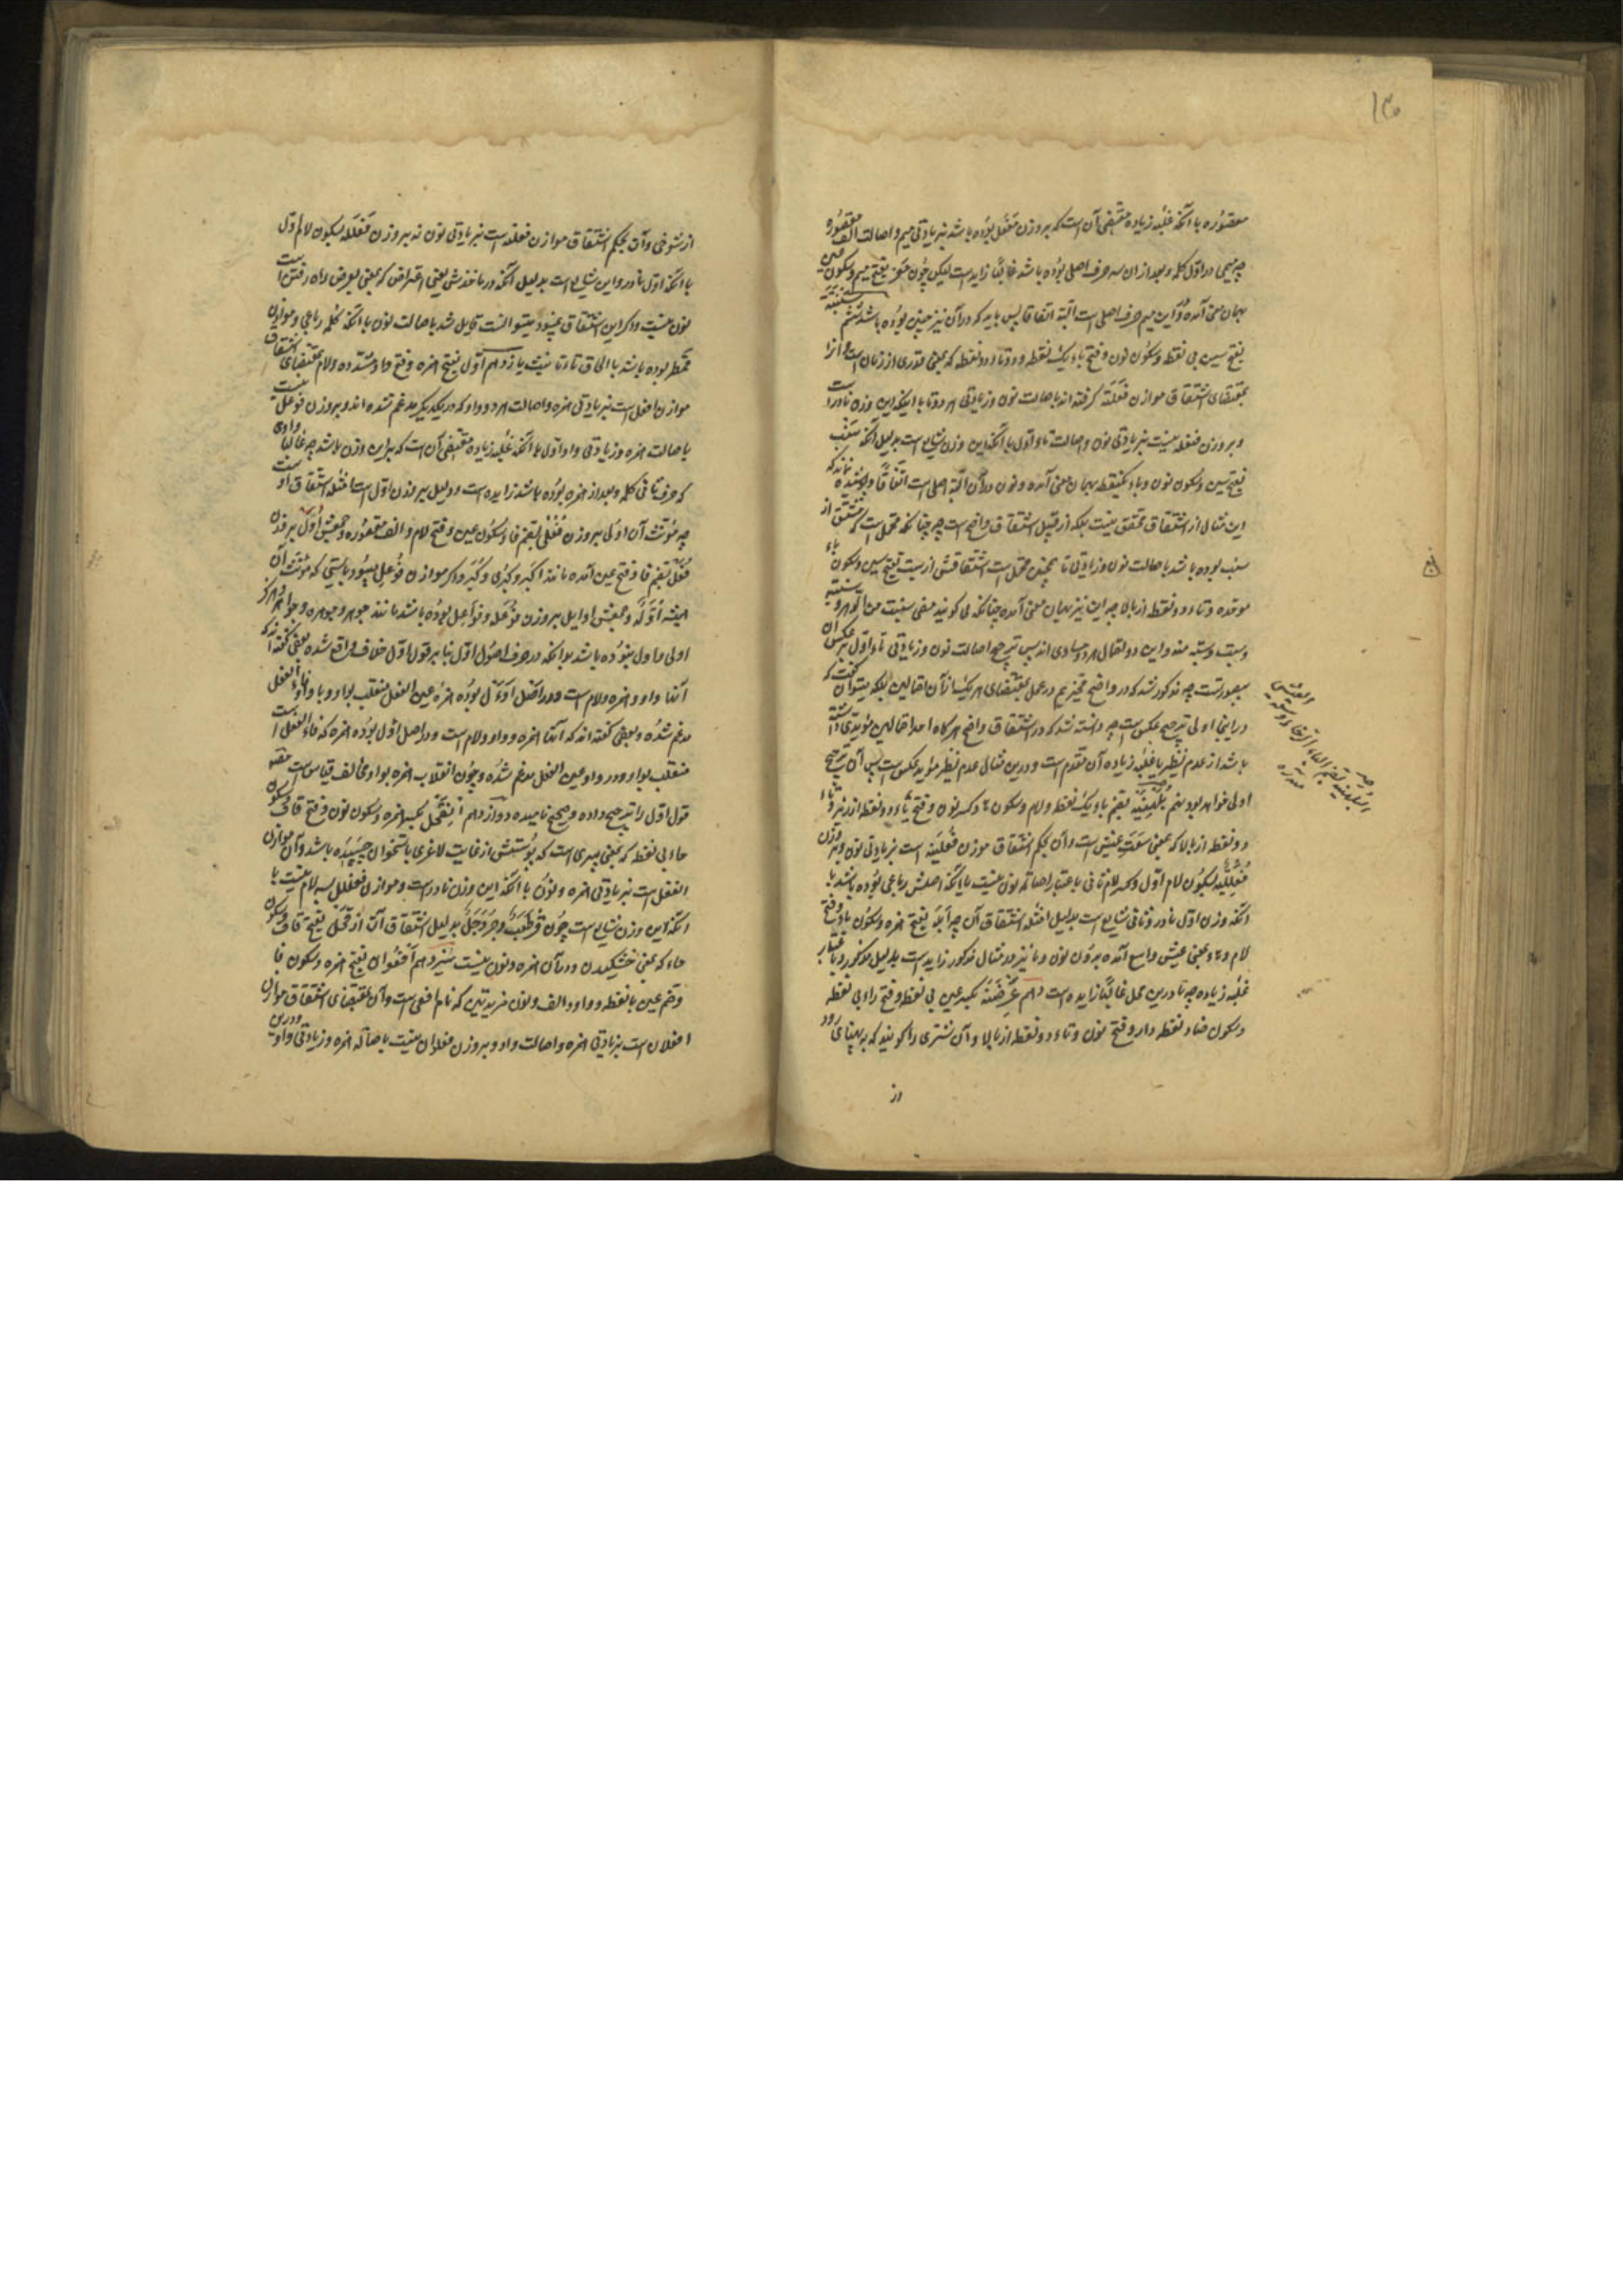 ١٣٠
مقصوره با آنکه غلبه زیاده مقتضی آن است که بر وزن مفعل بوده باشد بزیادتی میم و اصالت الف مقصوره
چه میمی در اول کلمه و بعد از آن سه حرف اصلی بوده باشد غالبا زاید است لیکن چون معز بفتح میم و سکون عین
بهمان معنی آمده و این میم حرف اصلی است البته اتفاقا پس باید که در آن نیز چنین بوده باشد ششم سنبتة
بفتح سین بی نقطه و سکون نون و فتح باء یک نقطه و دو تاء دو نقطه که بمعنی قدری از زمان است و آنرا
بمقتضای اشتقاق موازن فعلتة گرفته اند باصالت نون و زیادتی هر دو تا با اینکه این وزن نادر است
و بر وزن فنعلة نیست بزیادتی نون و اصالت تاء اول با آنکه این وزن شایع است بدلیل آنکه سنب
بفتح سین و سکون نون و باء یکنقطه بهمان معنی آمده و نون در آن البته اصلی است اتفاقا و پوشیده نماند که
این مثال از اشتقاق محقق نیست بلکه از قبیل اشتقاق واضح است چه چنانکه محتمل است که مشتق از
سنب بوده باشد باصالت نون و زیادتی تا همچنین محتمل است اشتقاقش از سبت بفتح سین و سکون باء
موحده و تاء دو نقطه از بالا چه این نیز بهمان معنی آمده چنانکه می گویند مضی سنبت من الدهر و سنبتة
و سبت و سبتة منه و این دو احتمال هر دو مساوی اند پس ترجیح اصالت نون و زیادتی تاء اول بر عکس آن
بیصورتست چه مذکور شد که در واضح مخیریم در عمل بمقتضای هر یک از آن احتمالین بلکه میتوان گفت که
در اینجا اولی ترجیح عکس است چه دانسته شد که در اشتقاق واضح هرگاه احد احتمالین مؤیدی داشته
باشد از عدم نظیر یا غلبه زیاده آن مقدم است و درین مثال عدم نظیر مؤید عکس است پس آن ترجیح
اولی خواهد بود نهم بلهنیة بضم باء یک نقطه و لام و سکون ها و کسر نون و فتح یاء دو نقطه از زیر و تاء
دو نقطه از بالا که بمعنی سعت عیش است و آن بحکم اشتقاق موزن فعلنیه است بزیادتی نون و بر وزن
فعلّلیة بسکون لام اول و کسر لام ثانی باعتبار اصالة نون نیست با آنکه اصلش رباعی بوده باشد با
آنکه وزن اول نادر و ثانی شایع است بدلیل امثله اشتقاق آن چه ابله بفتح همزه و سکون باء و فتح
لام و هاء بمعنی عیش واسع آمده بدون نون و یا نیز در مثال مذکور زاید است بدلیل مذکور و باعتبار
غلبه زیاده چه یا درین محل غالبا زایده است دهم عرضنة بکسر عین بی نقطه و فتح راء بی نقطه
و سکون ضاد نقطه دار و فتح نون و تاء دو نقطه از بالا و آن شتری را گویند که به پهنای رود
از
از شوخی و آن بحکم اشتقاق موازن فعلنة است بزیادتی نون نه بر وزن فعللة بسکون لام اول
با آنکه اول نادر و این شایع است بدلیل آنکه در ماخذش یعنی اعتراض که بمعنی بعرض راه رفتن است
نون نیست و اگر این اشتقاق نمیبود میتوانست قایل شد باصالت نون با آنکه کلمه رباعی و موازن
قمطر بوده باشد با الحاق تاء تانیث یازدهم اول بفتح همزه و فتح واو مشدده و لام بمقتضای اشتقاق
موازن افعل است بزیادتی همزه و اصالت هر دو واو که در یکدیگر مدغم شده اند و بر وزن فوعل نیست
باصالت همزه و زیادتی واو اول با آنکه غلبه زیاده مقتضی آن است که براین وزن باشد چه غالبا واوی
که حرف ثانی کلمه و بعد از همزه بوده باشد زایده است و دلیل بر وزن اول است امثله اشتقاق او است
چه مؤنث آن اولی بر وزن فعلی بضم فا و سکون عین و فتح لام و الف مقصوره و جمعش اول بر وزن
فعل بضم فا و فتح عین آمده مانند اکبر و کبری و کبر و اگر موازن فوعل میبود بایستی که مؤنث آن
همیشه اولة و جمعش اوایل بر وزن فوعلة و فواعل بوده باشد مانند جوهر و جوهره و جواهر و هرگز
اولی و اول نبوده باشد بدانکه در حرف اصول اول بنا بر قول اول خلاف واقع شده بعضی گفته اند که
آنها واو و همزه و لام است و در اصل اوءل بوده همزه عین الفعل منقلب بواو و با واو فاء الفعل
مدغم شده و بعضی گفته اند که آنها همزه و واو و لام است و در اصل اءول بوده همزه که فاء الفعل است
منقلب بواو و در واو عین الفعل مدغم شده و چون انقلاب همزه بواو مخالف قیاس است مصنف
قول اول را ترجیح داده و صحیح نامیده دوازدهم انقحل بکسر همزه و سکون نون و فتح قاف و سکون
حاء بی نقطه که بمعنی پیری است که پوستش از غایت لاغری باستخوان چسپیده باشد و آن موازن
انفعل است بزیادتی همزه و نون با آنکه این وزن نادر است و موازن فعللل بسه لام نیست با
آنکه این وزن شایع است چون قرطعب و جردحل بدلیل اشتقاق آن از قحل بفتح قاف و سکون
حاء که بمعنی خشکیدن و در آن همزه و نون نیست سیزدهم افعوان بفتح همزه و سکون فا
و ضم عین بانقطه و واو و الف و نون مزیدتین که نام افعی است و آن بمقتضای اشتقاق موازن
افعلان است بزیادتی همزه و اصالت واو و بر وزن فعلوان نیست باصالة همزه و زیادتی واو و درین